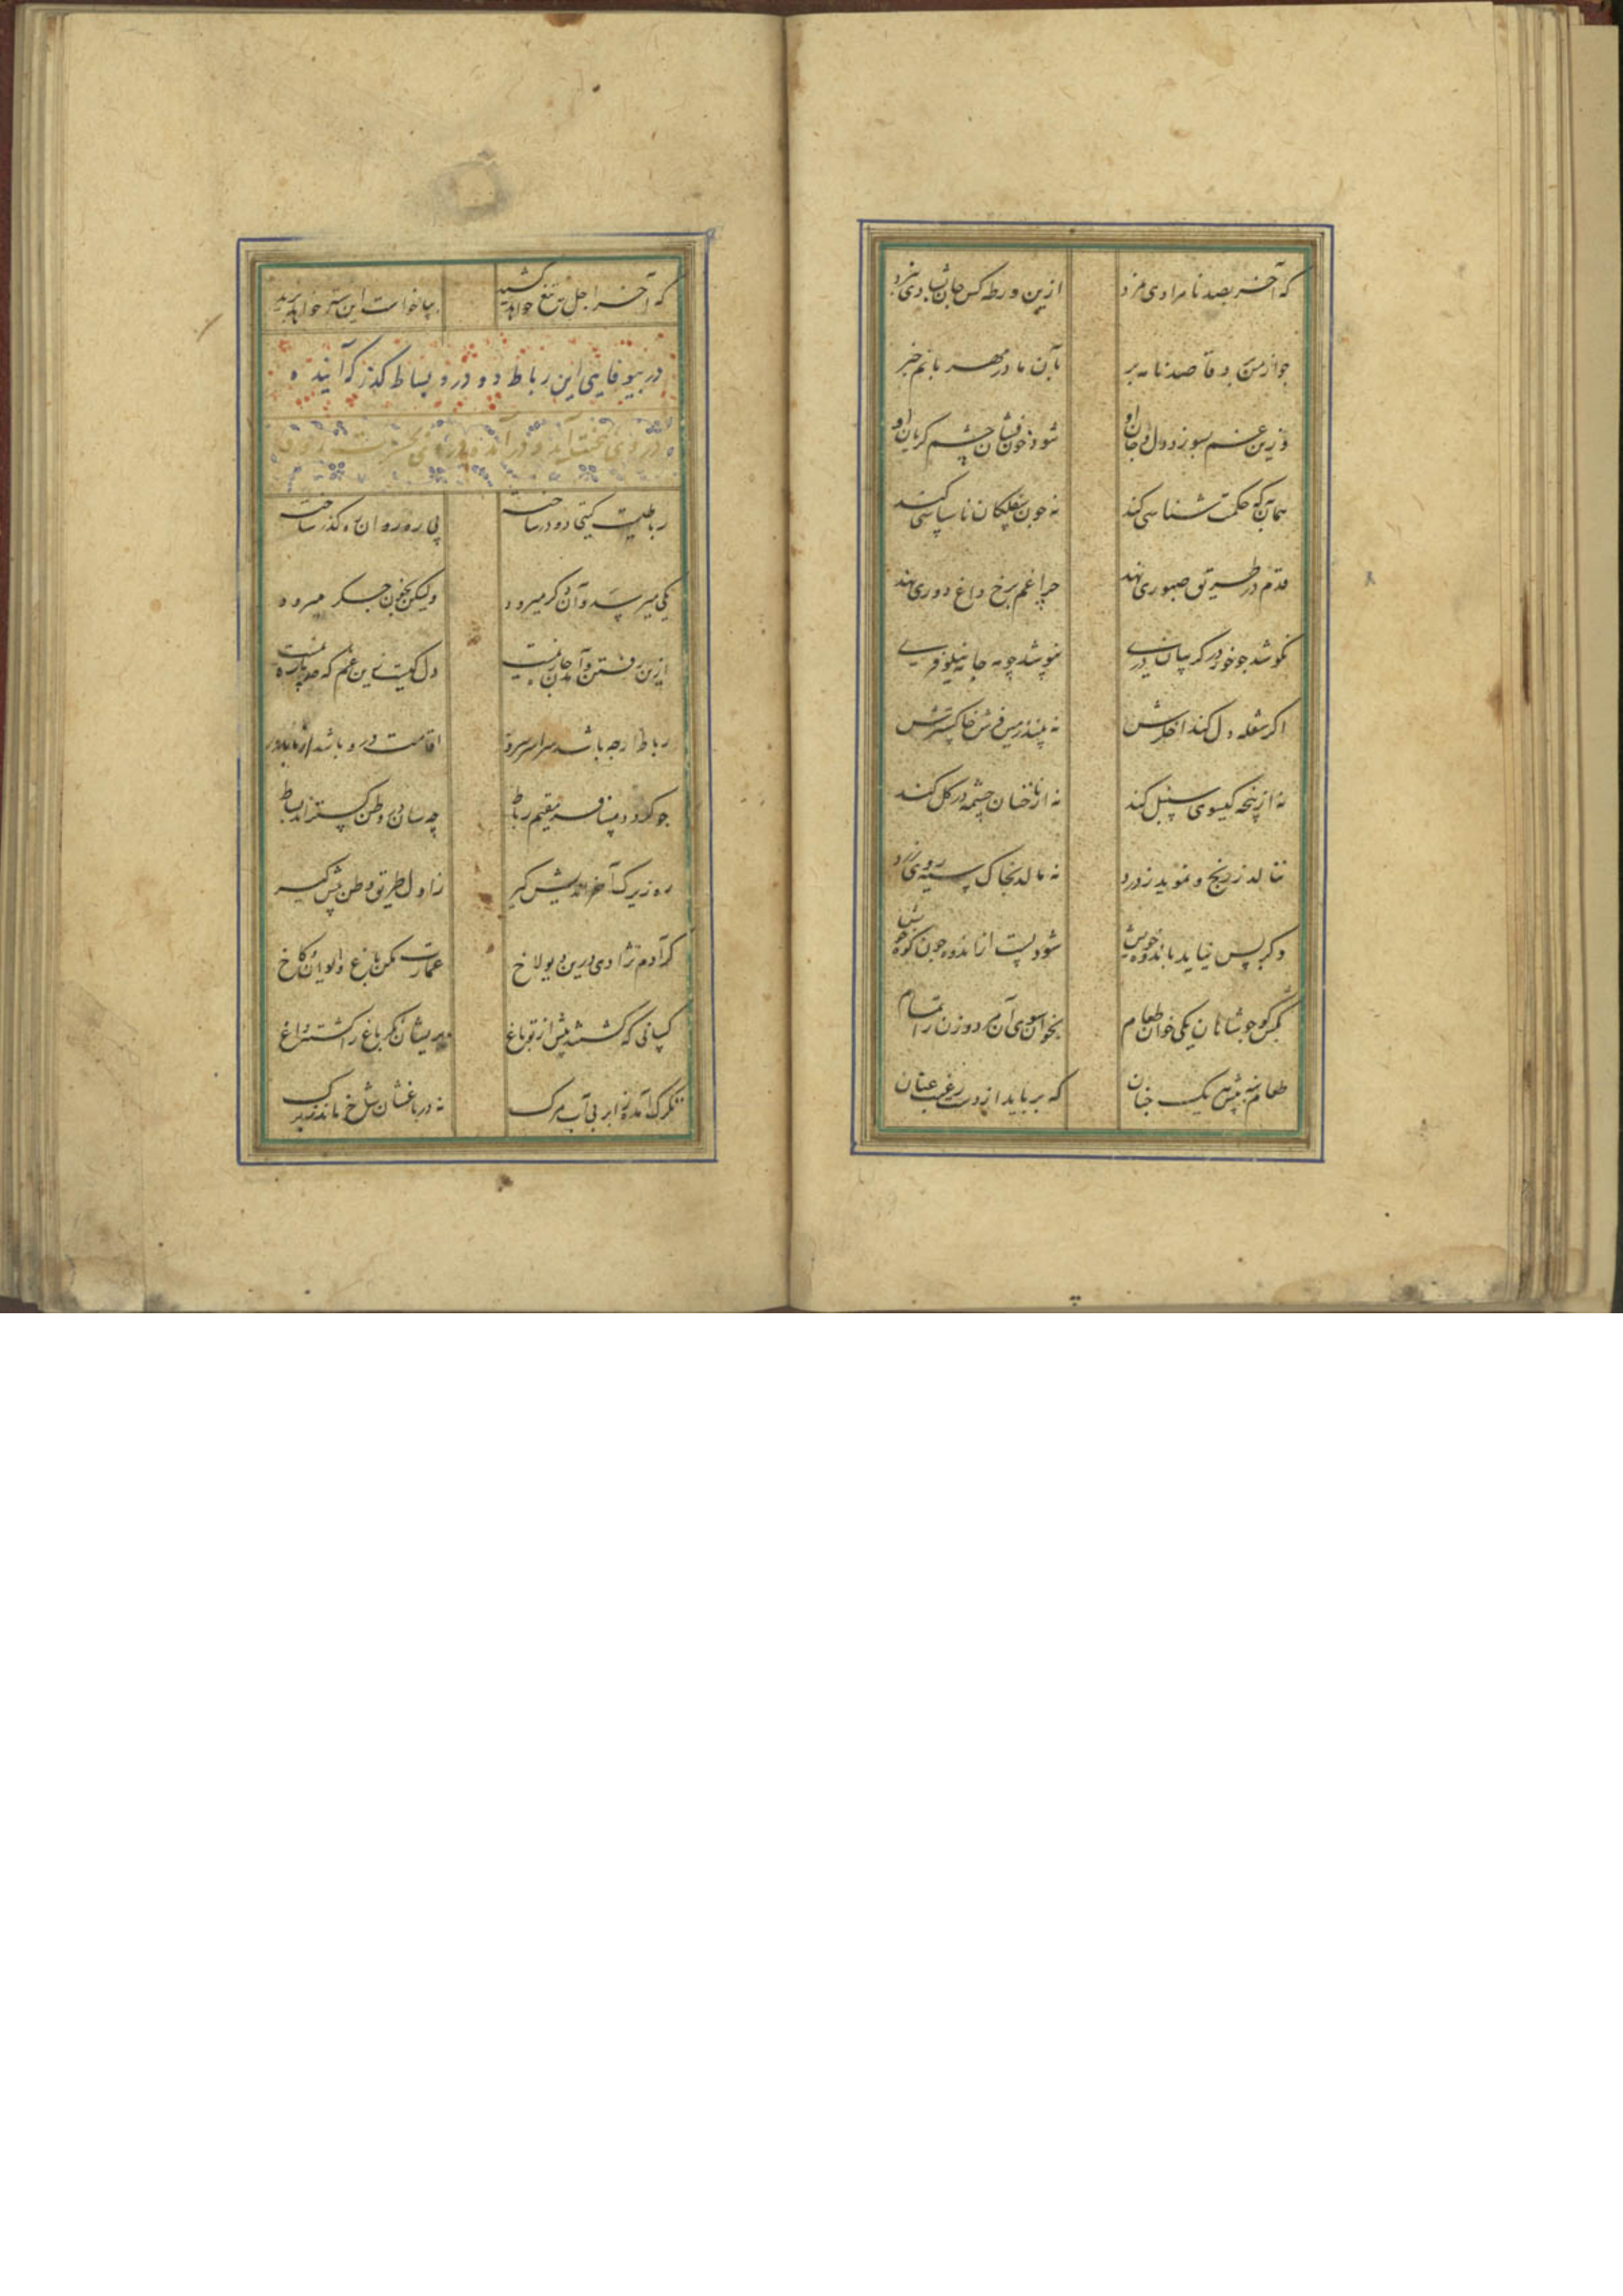 که آخر بصد نامرادی مرد ازین ورطه کس جان بشادی نبرد
جو از من برد قاصد نامه بر بآن مادر مهربانم خبر
وزین غم بسوزد دل و جان او شود خون فشان چشم گریان او
همان به که حکمت شناسی کند نه جون سفلکان ناسپاسی کند
قدم در طریق صبوری نهد جرا غم برخ داغ دوری نهد
نکوشد جو خور در کریبان دری نپوشد چو مه جامه نیلوفری
اکر شعله دل کند اخکرش نه بیند زمین فرش خاکسترش
نه از پنجه کیسوی سنبل کند نه از ناخنان چشمه در کل کند
ننالد ز رنج و نموید ز درد نه مالد بخاک سیه روی زرد
وکر بس نیاید باندوه خویش شود پست از اندوه جون کوه
بکو جو شاهان یکی خوان طعام بخوان سوی آن مرد و زن را تمام
طعامی نه پیش یک جنان که برباید از دست رغبت عنان
که آخر اجل تیغ خواهد کشید بناخواست این سر خواهد برید
در بیوفایی این رباط دو در و بساط کذر که آینده
از دری بخت آید و در آید و از دری بحسرت رود
رباطیست کیتی دو در ساخته پی ره روان ره کذر ساخته
یکی میرسد وان دکر میرود ولیکن بخون جکر میرود
ازین رفتن و آمدن جاره نیست دل کیست کین غم که صدپاره نیست
رباط ارجه باشد سراسر سرور اقامت درو باشد از
جو کردد مسافر مقیم رباط چه سان در وطن کستراند بساط
ره زیرک آخر اندیش کیر ز اول طریق وطن پیش کیر
کر آدم نژادی درین دیولاخ عمارت مکن باغ و ایوان و کاخ
کسانی که کشتند پیش از تو باغ پریشان نکر باغ را کشته زاغ
تکرک آمده ز ابر بی آب مرک نه در باغشان شاخ مانده نه برک